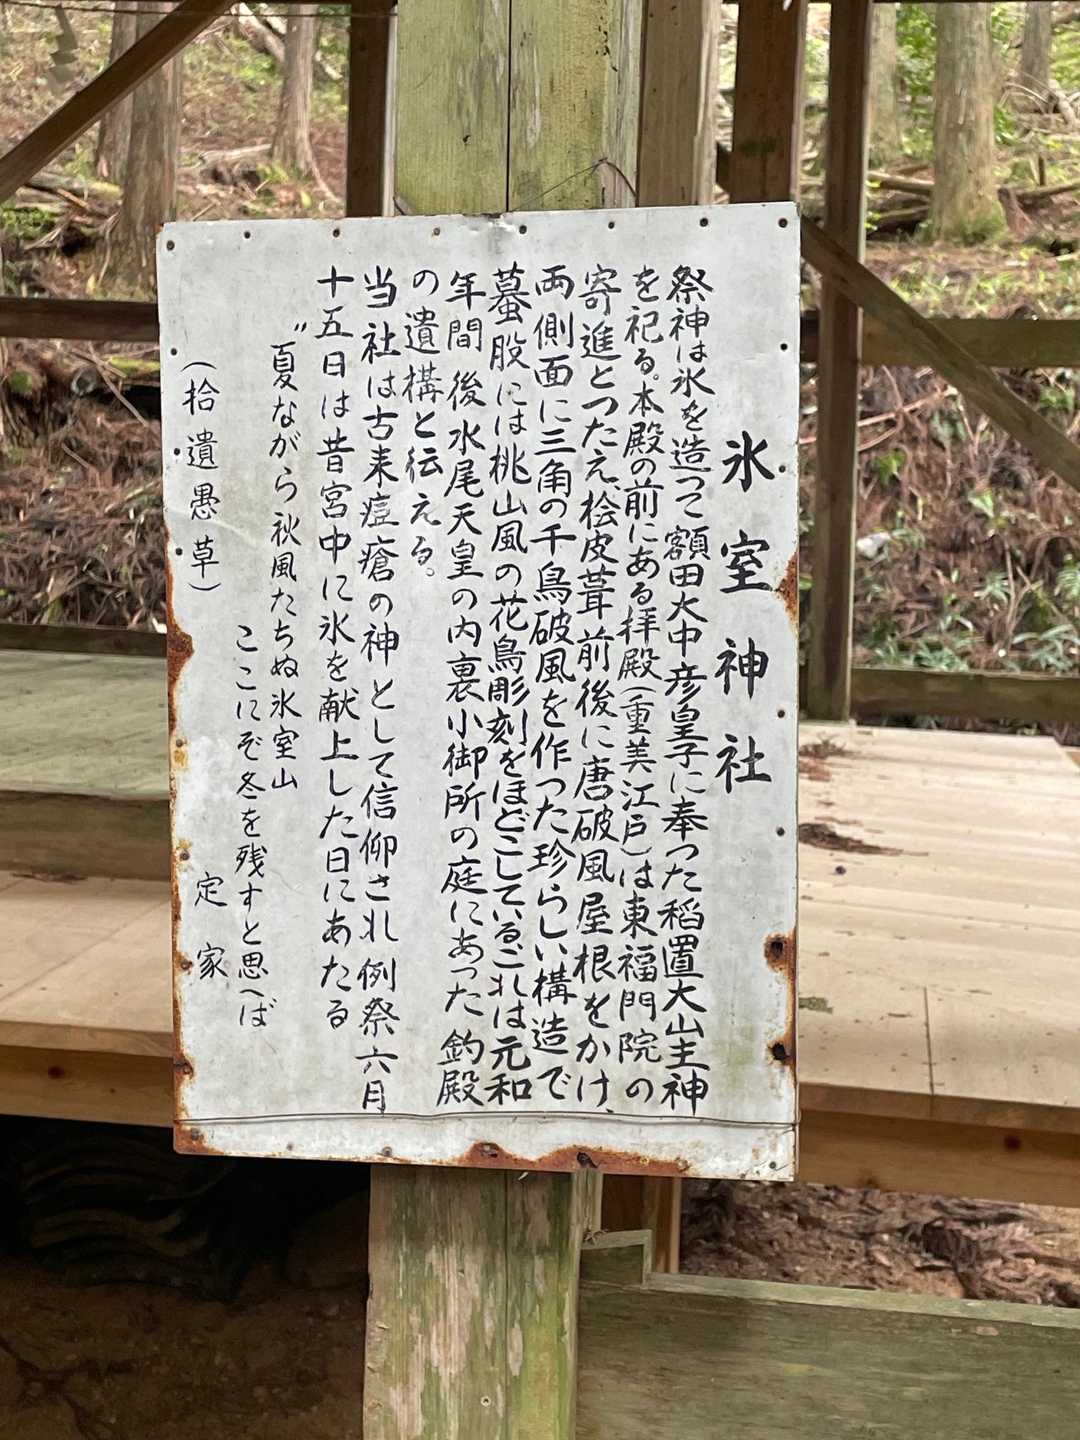 氷室神社
祭神は氷を造って額田大中彦皇子に奉った稲置大山主神
を祀る。本殿の前にある拝殿(重美江戸)は東福門院の
寄進とつたえ、桧皮葺前後に唐破風屋根をかけ、
両側面に三角の千鳥破風を作った珍らしい構造で
蟇股には桃山風の花鳥彫刻をほどこしている。これは元和
年間後水尾天皇の内裏小御所の庭にあった釣殿
の遺構と伝える。
当社は古来痘瘡の神として信仰され例祭六月
十五日は昔宮中に氷を献上した日にあたる
〃夏ながら秋風たちぬ氷室山
ここにぞ冬を残すと思へば
定家
(拾遺愚草)